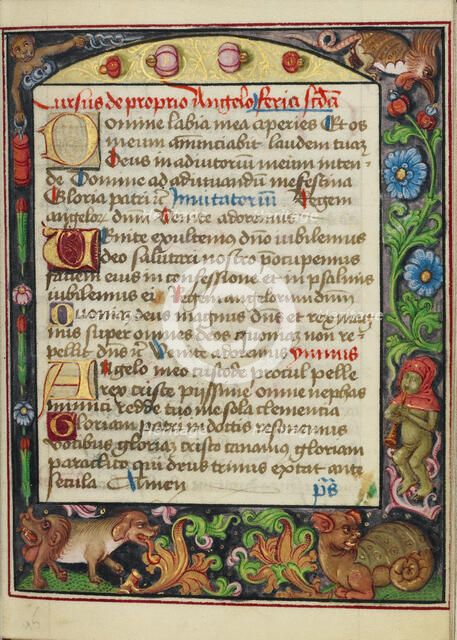 Cursus de proprio Angelo feria scda
Domine labia mea aperies Et os
meum annunciabit laudem tuaz
Deus in adiutoriū meum inten
de Domine ad adiuuandū me festina
Gloria patri Inuitatoriū Regem
angelor dnm Venite adoremus
Venite exultemus dno iubilemus
deo salutari nostro preoccupemus
faciem eius in confessione et in psalmis
iubilemus ei Regem angelorum dnm
Quoniaz deus magnus dns et rex mag
nus super omnes deos quoniaz non re
pellit dns Venite adoremus ymnus
Angelo meo custode procul pelle
rex criste pyssime omne nephas
mundi redde tuo me sola clementia
Gloriam patri modottis resonemus
votibus gloriaz cristo canamus gloriam
paraclito qui deus trinus extat ante
secula Amen ps